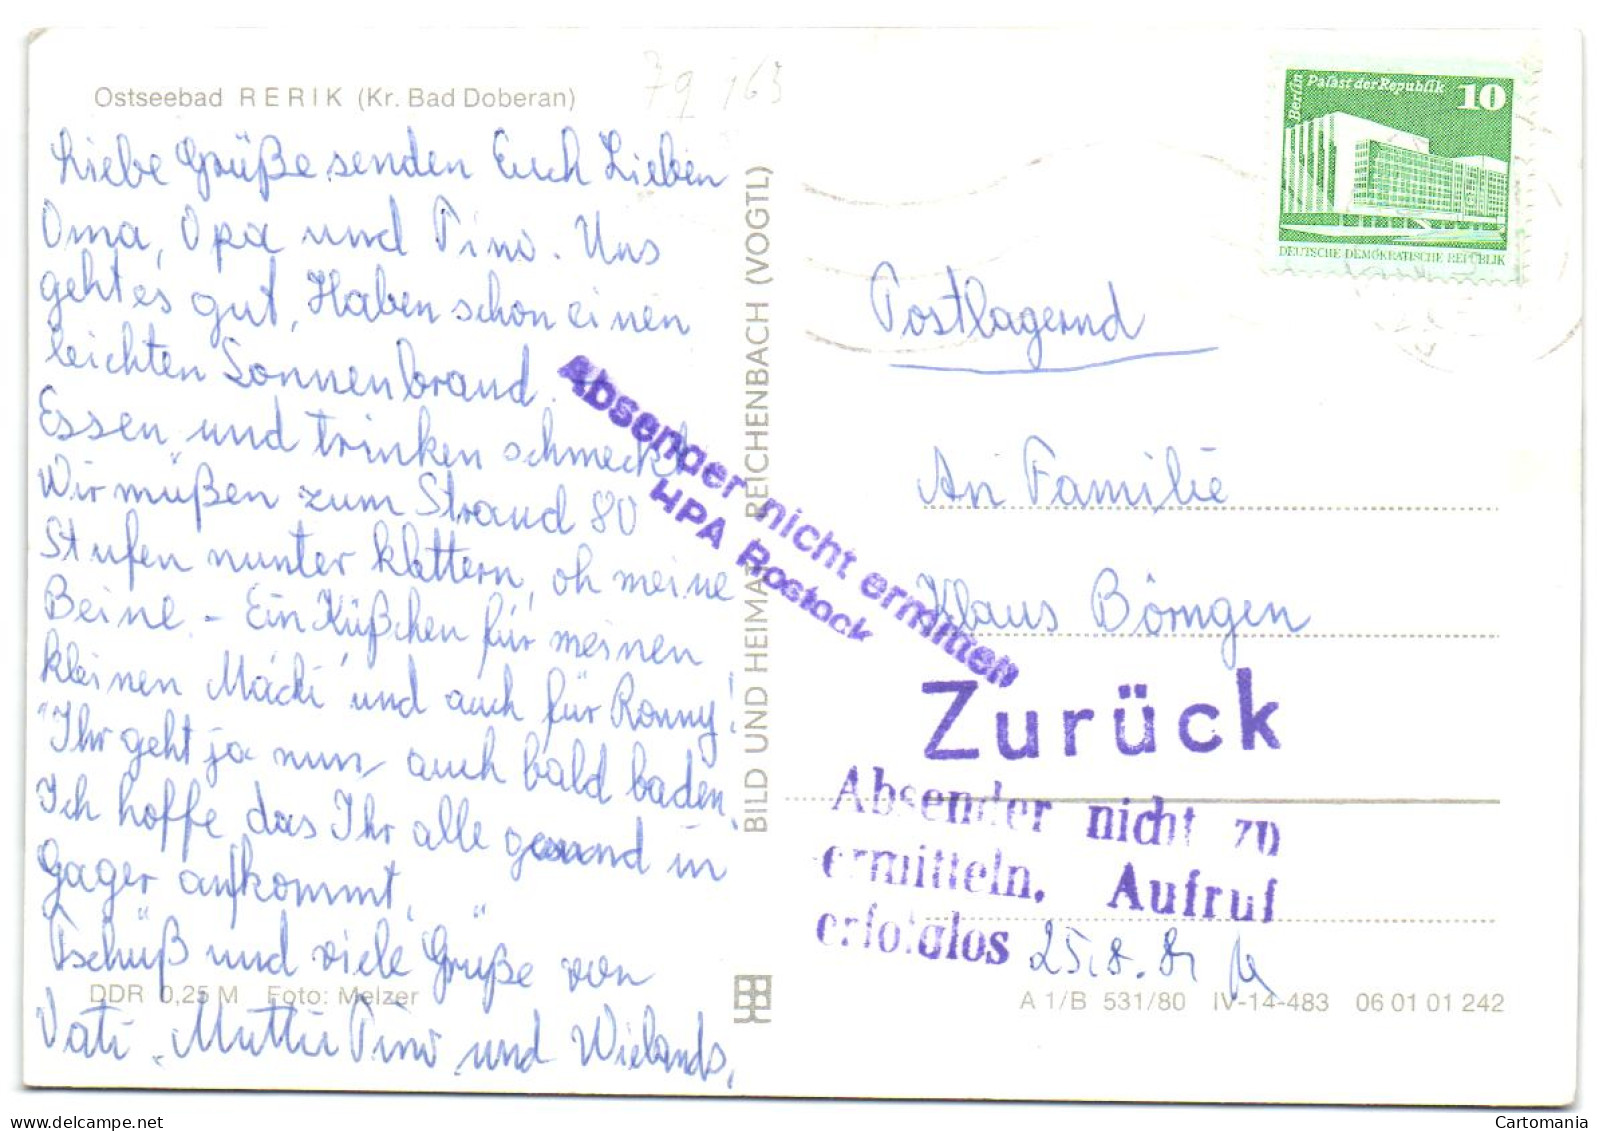 Ostseebad RERIK (Kr. Bad Doberan)
79 163
Liebe Grüße senden Euch Lieben
Oma, Opa und Tino. Uns
geht es gut, Haben schon einen
leichten Sonnenbrand.
Essen und trinken schmeckt
Wir müßen zum Strand 80
Stufen runter klettern, oh meine
Beine. - Ein Küßchen für meinen
kleinen Mácki und auch für Ronny!
Ihr geht ja nun auch bald baden.
Ich hoffe das Ihr alle gesund in
Gager aufkommt,
Tschüß und viele Grüße von
Vati, Mutti Tino und Wielands,
DDR 0,25 M Foto: Melzer
BILD UND HEIMAT REICHENBACH (VOGTL)
Absender nicht ermitteln
HPA Rostock
Berlin
Palast der Republik 10
DEUTSCHE DEMOKRATISCHE REPUBLIK
Postlagernd
An Familie
Klaus Börngen
Zurück
Absender nicht zu
ermitteln, Aufruf
erfolglos 25.8.81
A 1/B 531/80 IV-14-483 06 01 01 242
Cartomania